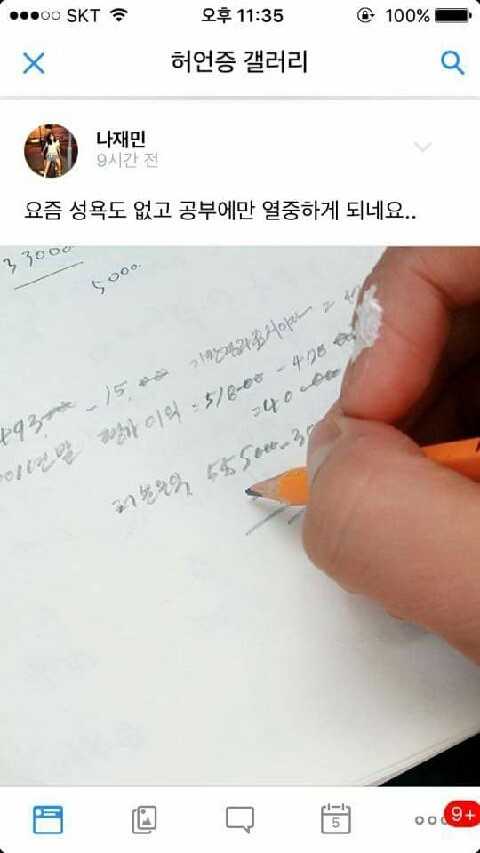 SKT 오후 11:35 100%
허언증 갤러리
나재민
9시간 전
요즘 성욕도 없고 공부에만 열중하게 되네요..
33000
5000
493
평가이익 = 51000 - 470
= 40
자본잉여 555000 - 3
5
9+